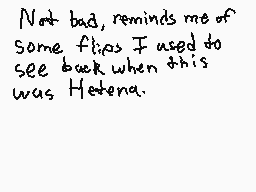 Not bad, reminds me of
some flips I used to
see back when this
was Hatena.